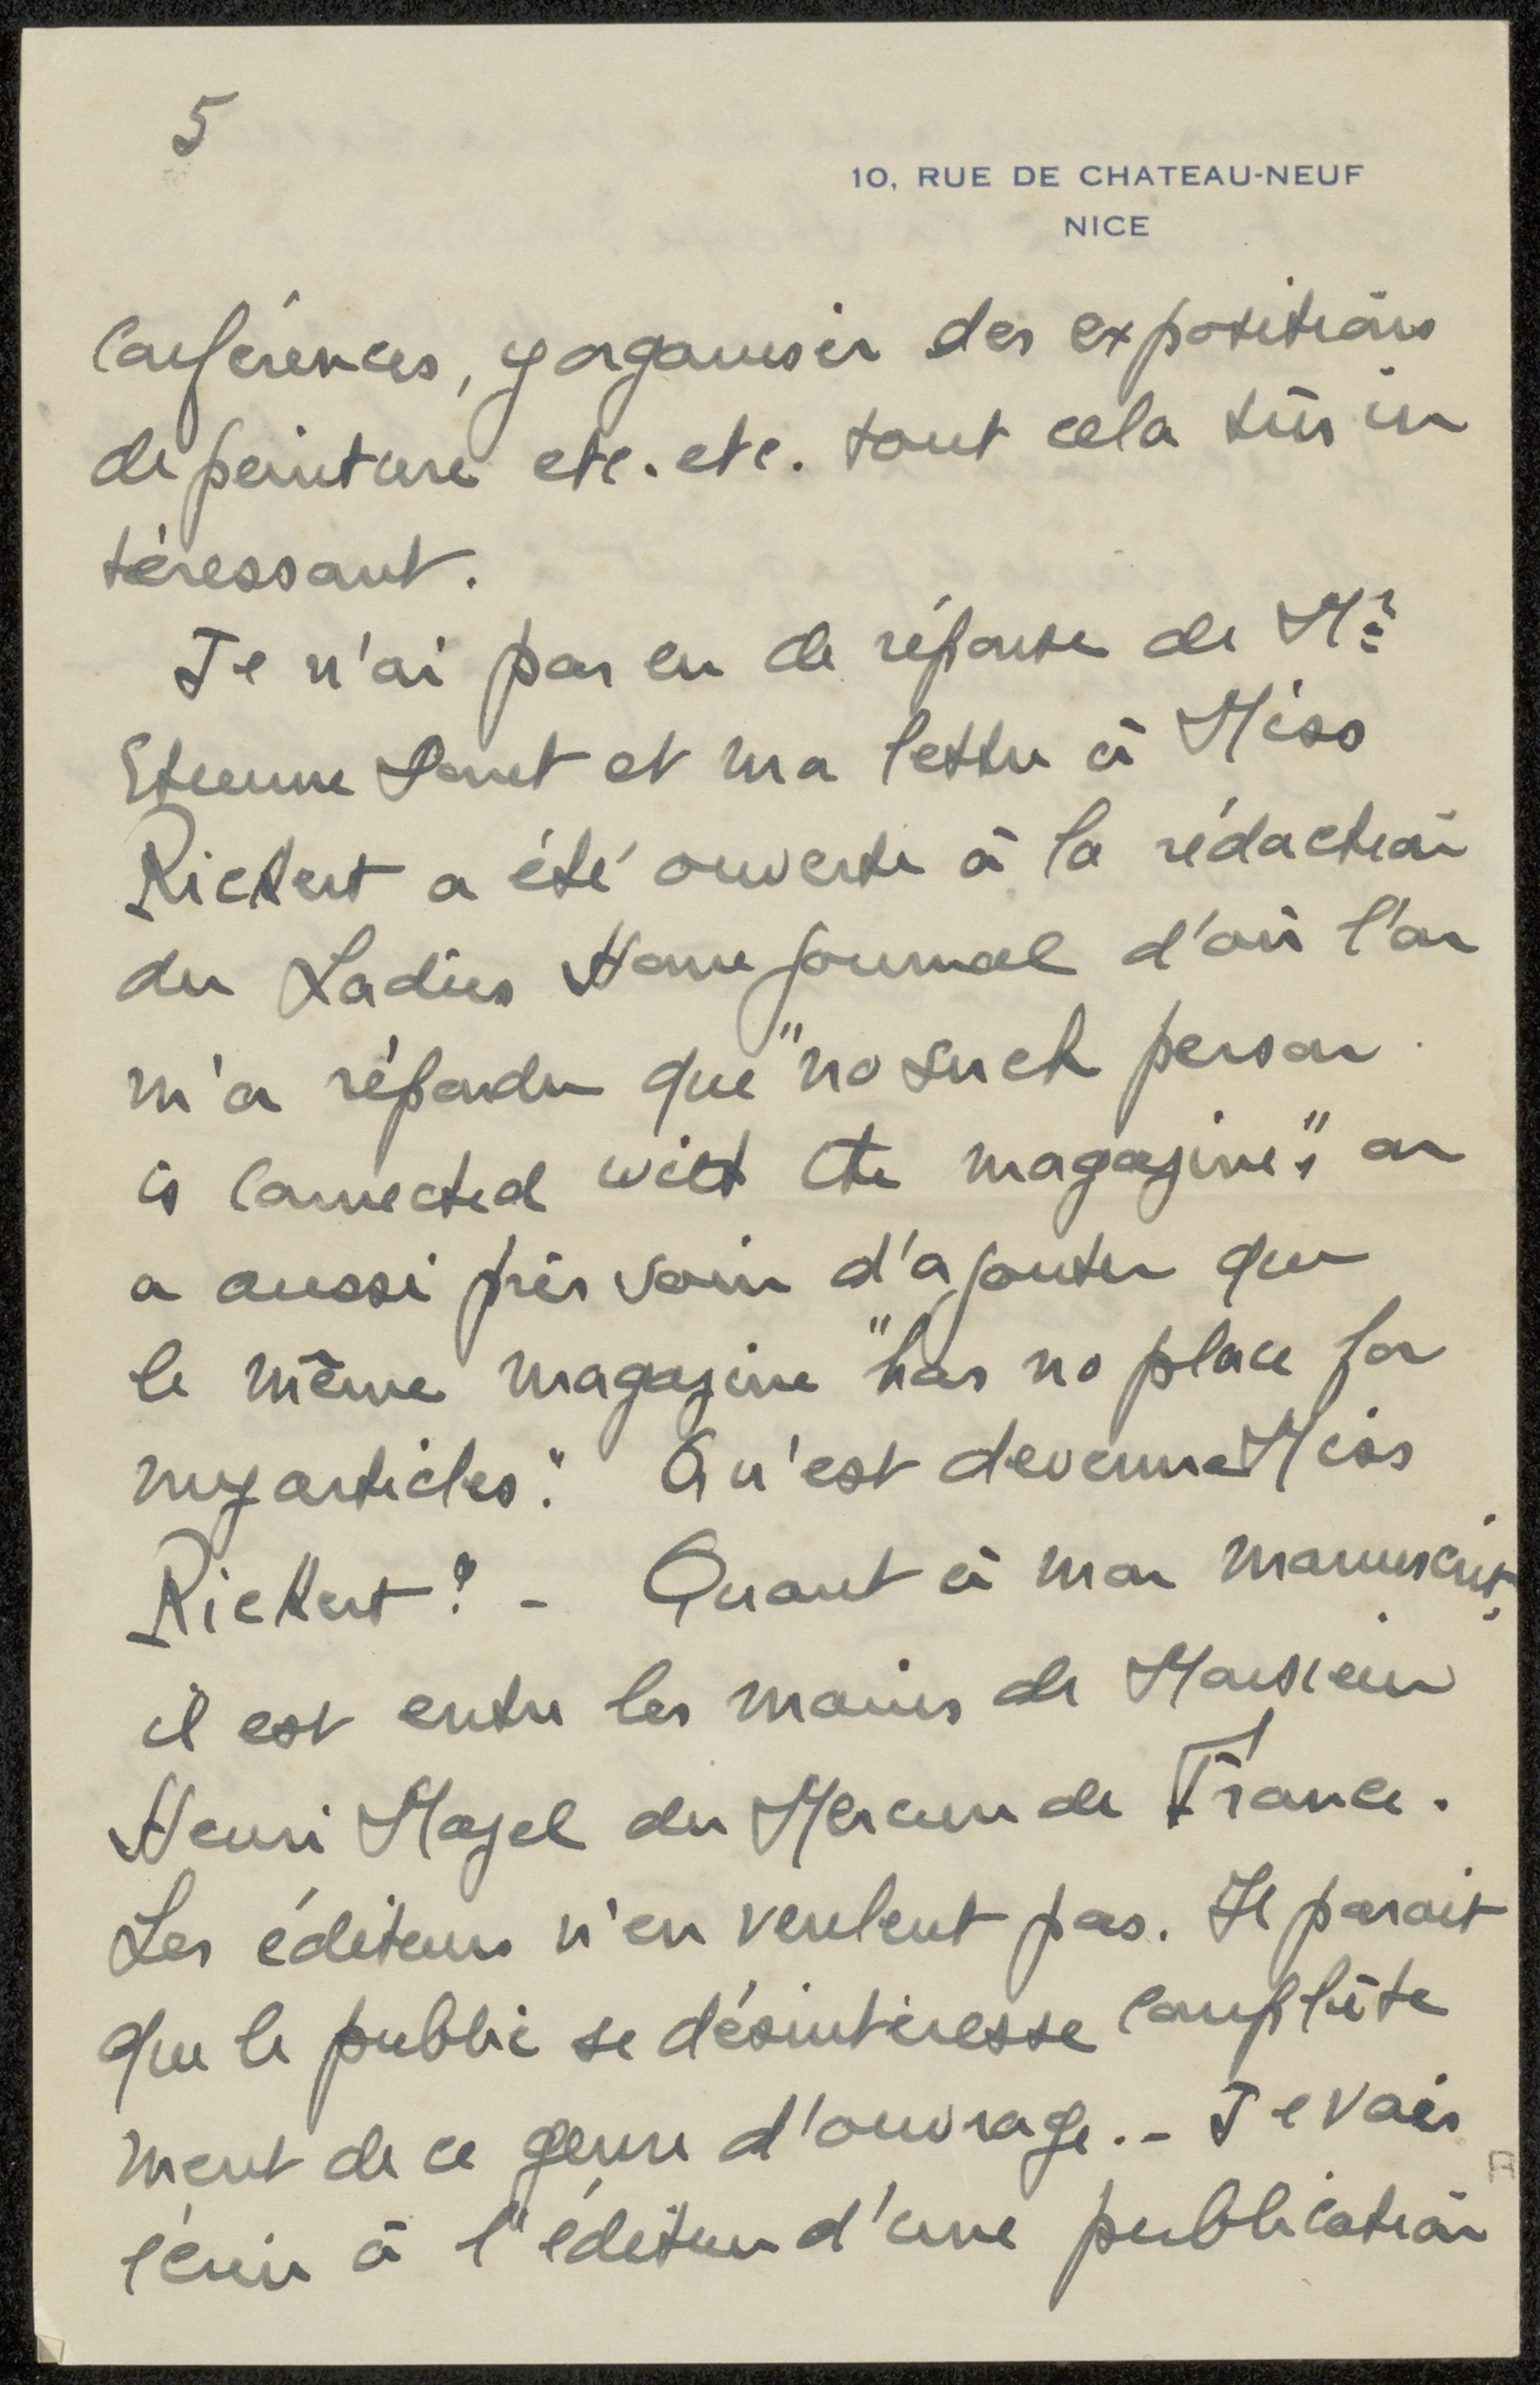 5
10, RUE DE CHATEAU-NEUF
NICE
Conférences, y organiser des expositions
de peinture etc. etc. tout cela très in
téressant.
Je n'ai pas eu de réponse de Mr
Etienne et ma lettre à Miss
Rickert a été ouverte à la rédaction
du Ladies Home Journal d'où l'on
m'a répondu que "no such person
is connected with the magazine", on
a aussi pris soin d'ajouter que
le même magazine "has no place for
my articles". Qu'est devenue Miss
Rickert? - Quant à mon manuscrit,
il est entre les mains de Monsieur
Henri Mazel du Mercure de France.
Les éditeurs n'en veulent pas. Il parait
que le public se désintéresse complète
ment de ce genre d'ouvrage. - Je vais
écrire à l'éditeur d'une publication